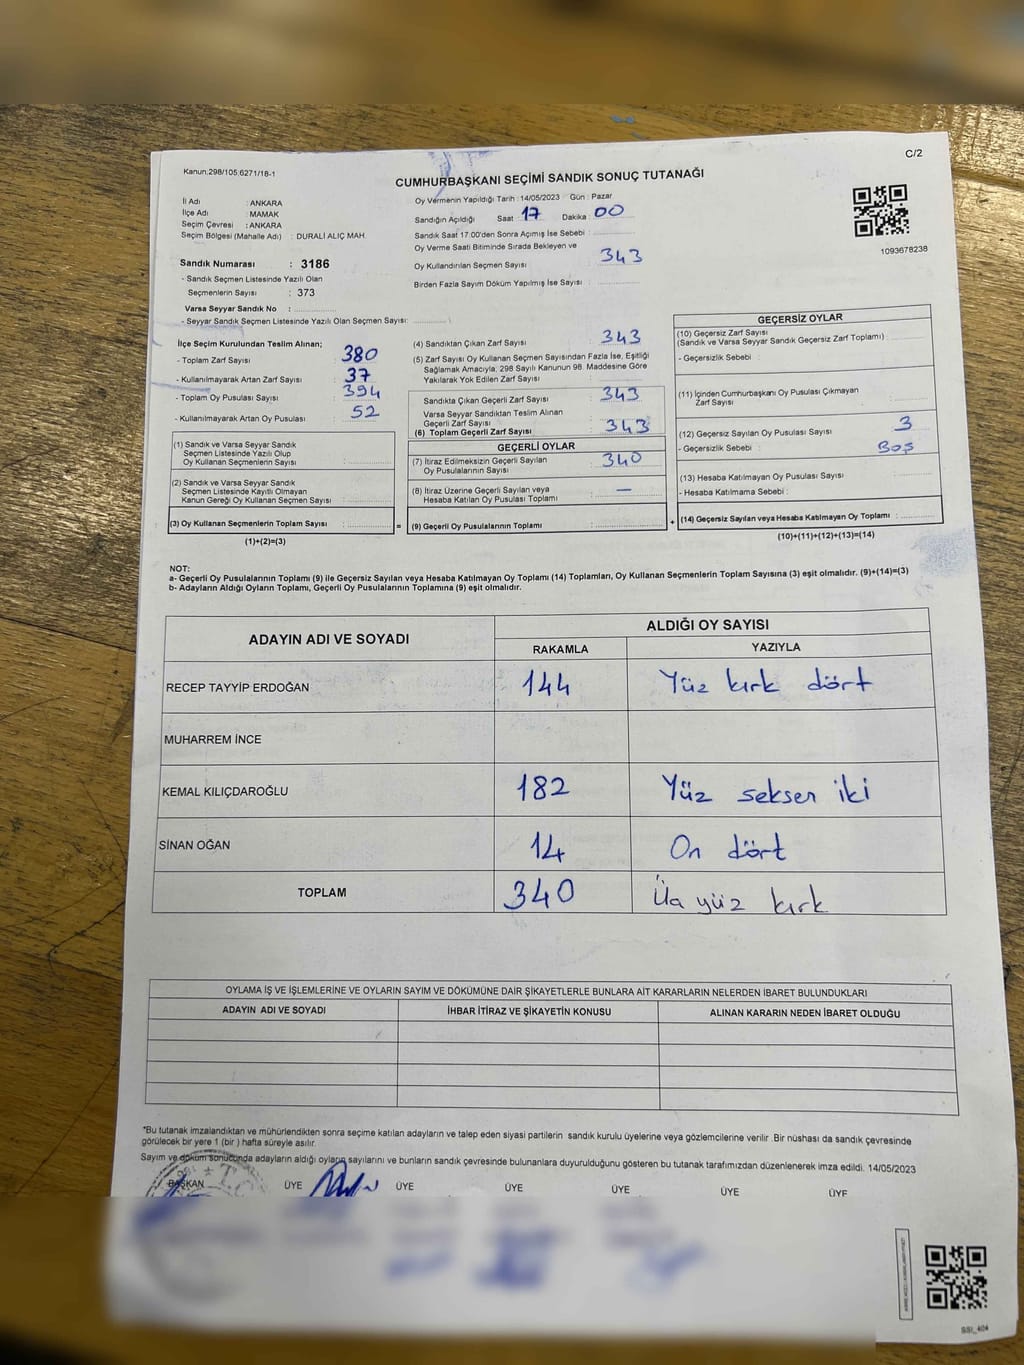 C/2
Kanun.298/105.6271/18-1
CUMHURBAŞKANI SEÇİMİ SANDIK SONUÇ TUTANAĞI
İl Adı : ANKARA
İlçe Adı : MAMAK
Seçim Çevresi : ANKARA
Seçim Bölgesi (Mahalle Adı) : DURALİ ALIÇ MAH.
Sandık Numarası : 3186
- Sandık Seçmen Listesinde Yazılı Olan
Seçmenlerin Sayısı : 373
Varsa Seyyar Sandık No :
- Seyyar Sandık Seçmen Listesinde Yazılı Olan Seçmen Sayısı:
Oy Vermenin Yapıldığı Tarih : 14/05/2023 Gün : Pazar
Sandığın Açıldığı Saat 17 Dakika 00
Sandık Saat 17:00'den Sonra Açımış İse Sebebi :
Oy Verme Saati Bitiminde Sırada Bekleyen ve
Oy Kullandırılan Seçmen Sayısı 343
Birden Fazla Sayım Döküm Yapılmış İse Sayısı :
1093678238
İlçe Seçim Kurulundan Teslim Alınan;
- Toplam Zarf Sayısı : 380
- Kullanılmayarak Artan Zarf Sayısı : 37
- Toplam Oy Pusulası Sayısı : 394
- Kullanılmayarak Artan Oy Pusulası : 52
(1) Sandık ve Varsa Seyyar Sandık
Seçmen Listesinde Yazılı Olup
Oy Kullanan Seçmenlerin Sayısı :
(2) Sandık ve Varsa Seyyar Sandık
Seçmen Listesinde Kayıtlı Olmayan
Kanun Gereği Oy Kullanan Seçmen Sayısı :
(3) Oy Kullanan Seçmenlerin Toplam Sayısı : =
(1)+(2)=(3)
(4) Sandıktan Çıkan Zarf Sayısı : 343
(5) Zarf Sayısı Oy Kullanan Seçmen Sayısından Fazla İse, Eşitliği
Sağlamak Amacıyla, 298 Sayılı Kanunun 98. Maddesine Göre
Yakılarak Yok Edilen Zarf Sayısı :
Sandıkta Çıkan Geçerli Zarf Sayısı : 343
Varsa Seyyar Sandıktan Teslim Alınan
Geçerli Zarf Sayısı :
(6) Toplam Geçerli Zarf Sayısı : 343
GEÇERLİ OYLAR
(7) İtiraz Edilmeksizin Geçerli Sayılan
Oy Pusulalarının Sayısı : 340
(8) İtiraz Üzerine Geçerli Sayılan veya
Hesaba Katılan Oy Pusulası Toplamı : —
(9) Geçerli Oy Pusulalarının Toplamı : +
GEÇERSİZ OYLAR
(10) Geçersiz Zarf Sayısı
(Sandık ve Varsa Seyyar Sandık Geçersiz Zarf Toplamı) :
- Geçersizlik Sebebi :
(11) İçinden Cumhurbaşkanı Oy Pusulası Çıkmayan
Zarf Sayısı :
(12) Geçersiz Sayılan Oy Pusulası Sayısı : 3
- Geçersizlik Sebebi : Boş
(13) Hesaba Katılmayan Oy Pusulası Sayısı :
- Hesaba Katılmama Sebebi :
(14) Geçersiz Sayılan veya Hesaba Katılmayan Oy Toplamı :
(10)+(11)+(12)+(13)=(14)
NOT:
a- Geçerli Oy Pusulalarının Toplamı (9) ile Geçersiz Sayılan veya Hesaba Katılmayan Oy Toplamı (14) Toplamları, Oy Kullanan Seçmenlerin Toplam Sayısına (3) eşit olmalıdır. (9)+(14)=(3)
b- Adayların Aldığı Oyların Toplamı, Geçerli Oy Pusulalarının Toplamına (9) eşit olmalıdır.
ADAYIN ADI VE SOYADI ALDIĞI OY SAYISI
RAKAMLA YAZIYLA
RECEP TAYYİP ERDOĞAN 144 Yüz kırk dört
MUHARREM İNCE
KEMAL KILIÇDAROĞLU 182 Yüz seksen iki
SİNAN OĞAN 14 On dört
TOPLAM 340 Üç yüz kırk
OYLAMA İŞ VE İŞLEMLERİNE VE OYLARIN SAYIM VE DÖKÜMÜNE DAİR ŞİKAYETLERLE BUNLARA AİT KARARLARIN NELERDEN İBARET BULUNDUKLARI
ADAYIN ADI VE SOYADI İHBAR İTİRAZ VE ŞİKAYETİN KONUSU ALINAN KARARIN NEDEN İBARET OLDUĞU
*Bu tutanak imzalandıktan ve mühürlendikten sonra seçime katılan adayların ve talep eden siyasi partilerin sandık kurulu üyelerine veya gözlemcilerine verilir .Bir nüshası da sandık çevresinde
görülecek bir yere 1 (bir ) hafta süreyle asılır.
Sayım ve döküm sonucunda adayların aldığı oyların sayılarını ve bunların sandık çevresinde bulunanlara duyurulduğunu gösteren bu tutanak tarafımızdan düzenlenerek imza edildi. 14/05/2023
BAŞKAN ÜYE ÜYE ÜYE ÜYE ÜYE ÜYE
SSI_404